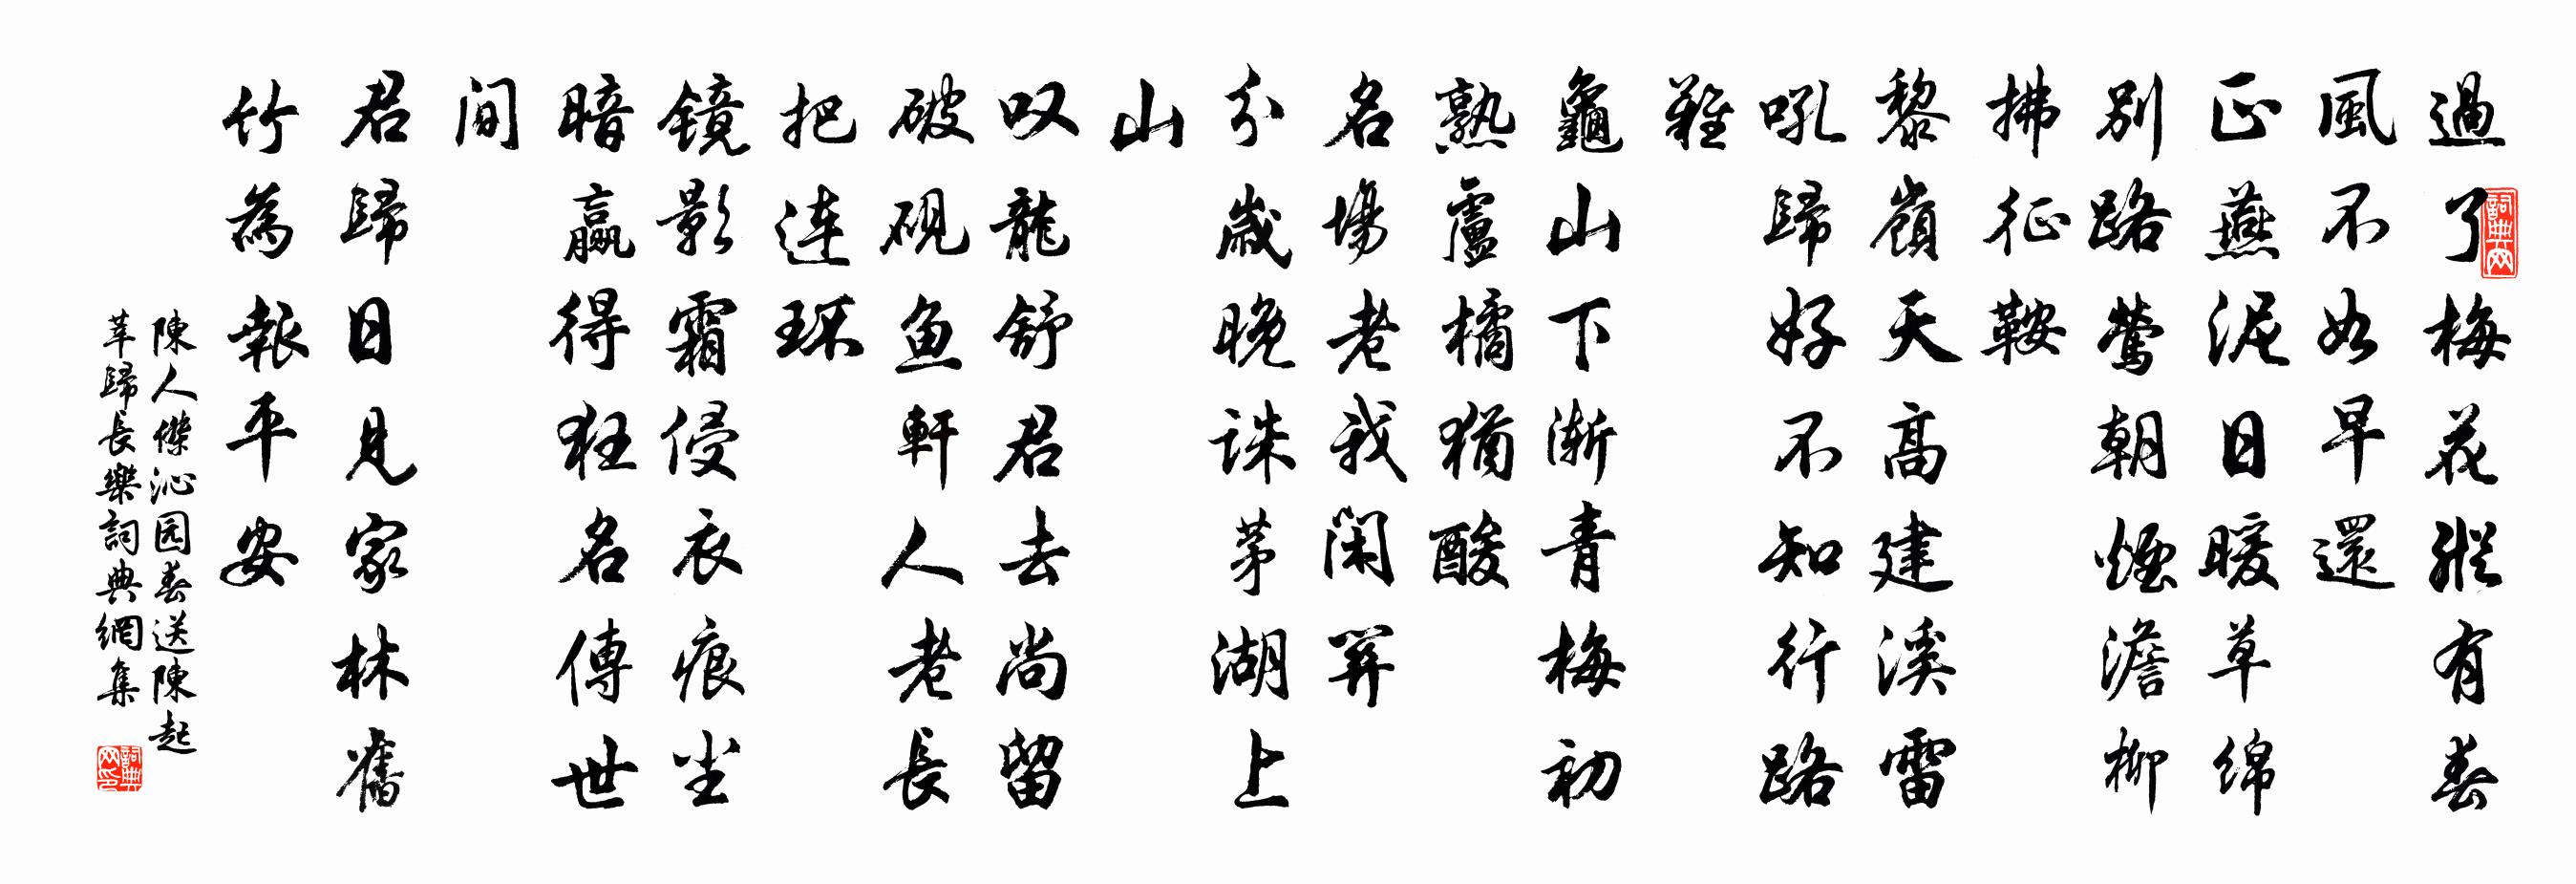 過了梅花縱有春
風不如早還
正燕泥日暖草綿
別路鶯朝煙澹柳
拂征鞍
黎嶺天高建溪雷
吼歸好不知行路
難
龜山下漸青梅初
熟盧橘猶酸
名場老我閑關
分歲晚誅茅湖上
山
叹龍舒君去尚留
破硯魚軒人老長
把連环
镜影霜侵衣痕尘
暗赢得狂名傳世
間
君歸日見家林舊
竹為報平安
陳人傑沁园春送陳起
莘歸長樂詞典網集
詞典网
詞典网印